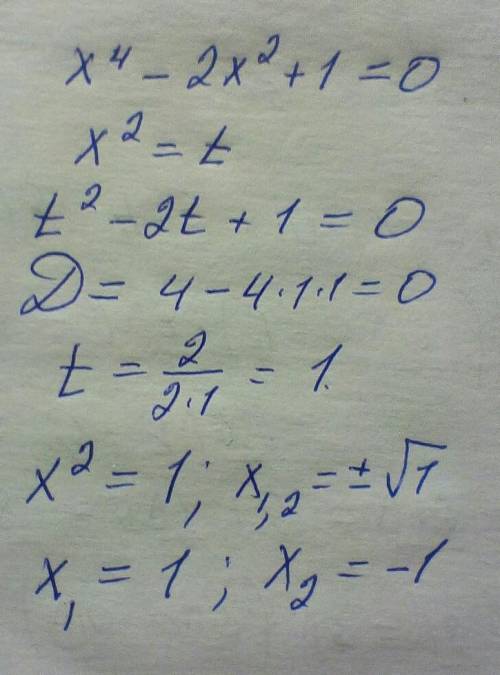 x⁴ - 2x² + 1 = 0
x² = t
t² - 2t + 1 = 0
D = 4 - 4·1·1 = 0
t = 2/(2·1) = 1.
x² = 1; x₁,₂ = ±√1
x₁ = 1; x₂ = -1